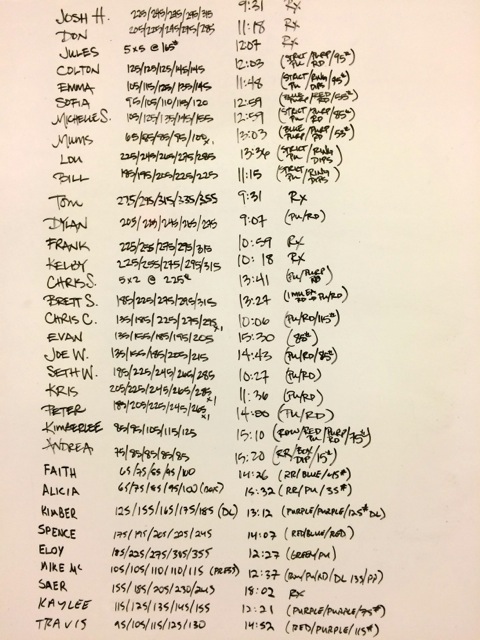 JOSH H. 225/245/265/295/315 9:31 RX
DON 205/225/245/275/285 11:18 RX
JULES 5x5 @ 165# 12:07 RX
COLTON 125/125/125/145/145 12:03 (STRICT PU/PURP RD/95#)
EMMA 105/115/125/135/145 11:48 (STRICT PU/RING DIPS/95#)
SOFIA 95/105/110/115/120 12:59
MICHELLE S. 105/125/135/145/155 12:59 (STRICT PU/PURP RD/85#)
MUMS 65/85/85/95/100x1 13:03 (BLUE PURP/PURP RD/55#)
LOU 225/245/265/275/285 13:36 (STRICT PU/RING DIPS)
BILL 185/195/205/225/225 11:15 (STRICT PU/RING DIPS)
TOM 275/295/315/335/355 9:31 RX
DYLAN 205/225/245/265/275 9:07 (PU/RD)
FRANK 225/255/275/295/315 10:59 RX
KELBY 225/255/275/295/315 10:18 RX
CHRIS S. 5x2 @ 225# 13:41 (PU/PURP RD)
BRETT S. 185/225/275/295/315 13:27
CHRIS C. 135/185/225/275/295x1 10:06 (PU/RD/115#)
EVAN 135/155/185/195/205 15:30 (85#)
JOE W. 135/155/185/205/215 14:43 (PU/RD/85#)
SETH W. 185/225/245/265/285 10:27 (PU/RD)
KRIS 205/225/245/265/285x1 11:36 (PU/RD)
PETER 185/205/225/245/265x1 14:00 (PU/RD)
KIMBERLEE 85/95/105/115/125 15:10 (ROW/RED PU/PURP RD/75#)
ANDREA 75/85/85/85/85 15:20 (RR/BOX DIP/15#)
FAITH 65/75/85/95/100 14:26 (RR/BLUE/45#)
ALICIA 65/75/85/95/100 15:32 (RR/PU/35#)
KIMBER 125/155/165/175/185 (DL) 13:12 (PURPLE/PURPLE/125# DL)
SPENCE 175/195/205/225/245 14:07 (RED/BLUE/RED)
ELOY 185/225/275/315/355 12:27 (GREEN/PU)
MIKE MC 105/105/110/110/115 (PRESS) 12:37
SAER 155/185/205/230/245 18:02 RX
KAYLEE 115/125/135/145/155 12:21 (PURPLE/PURPLE/75#)
TRAVIS 95/105/115/125/130 14:52 (RED/PURPLE/115#)